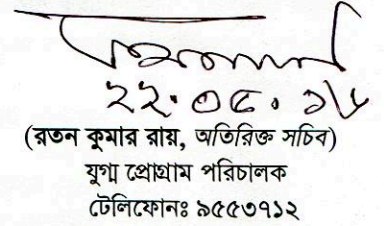 ২২.০৫.১৮
(রতন কুমার রায়, অতিরিক্ত সচিব)
যুগ্ম প্রোগ্রাম পরিচালক
টেলিফোনঃ ৯৫৫৩৭১২